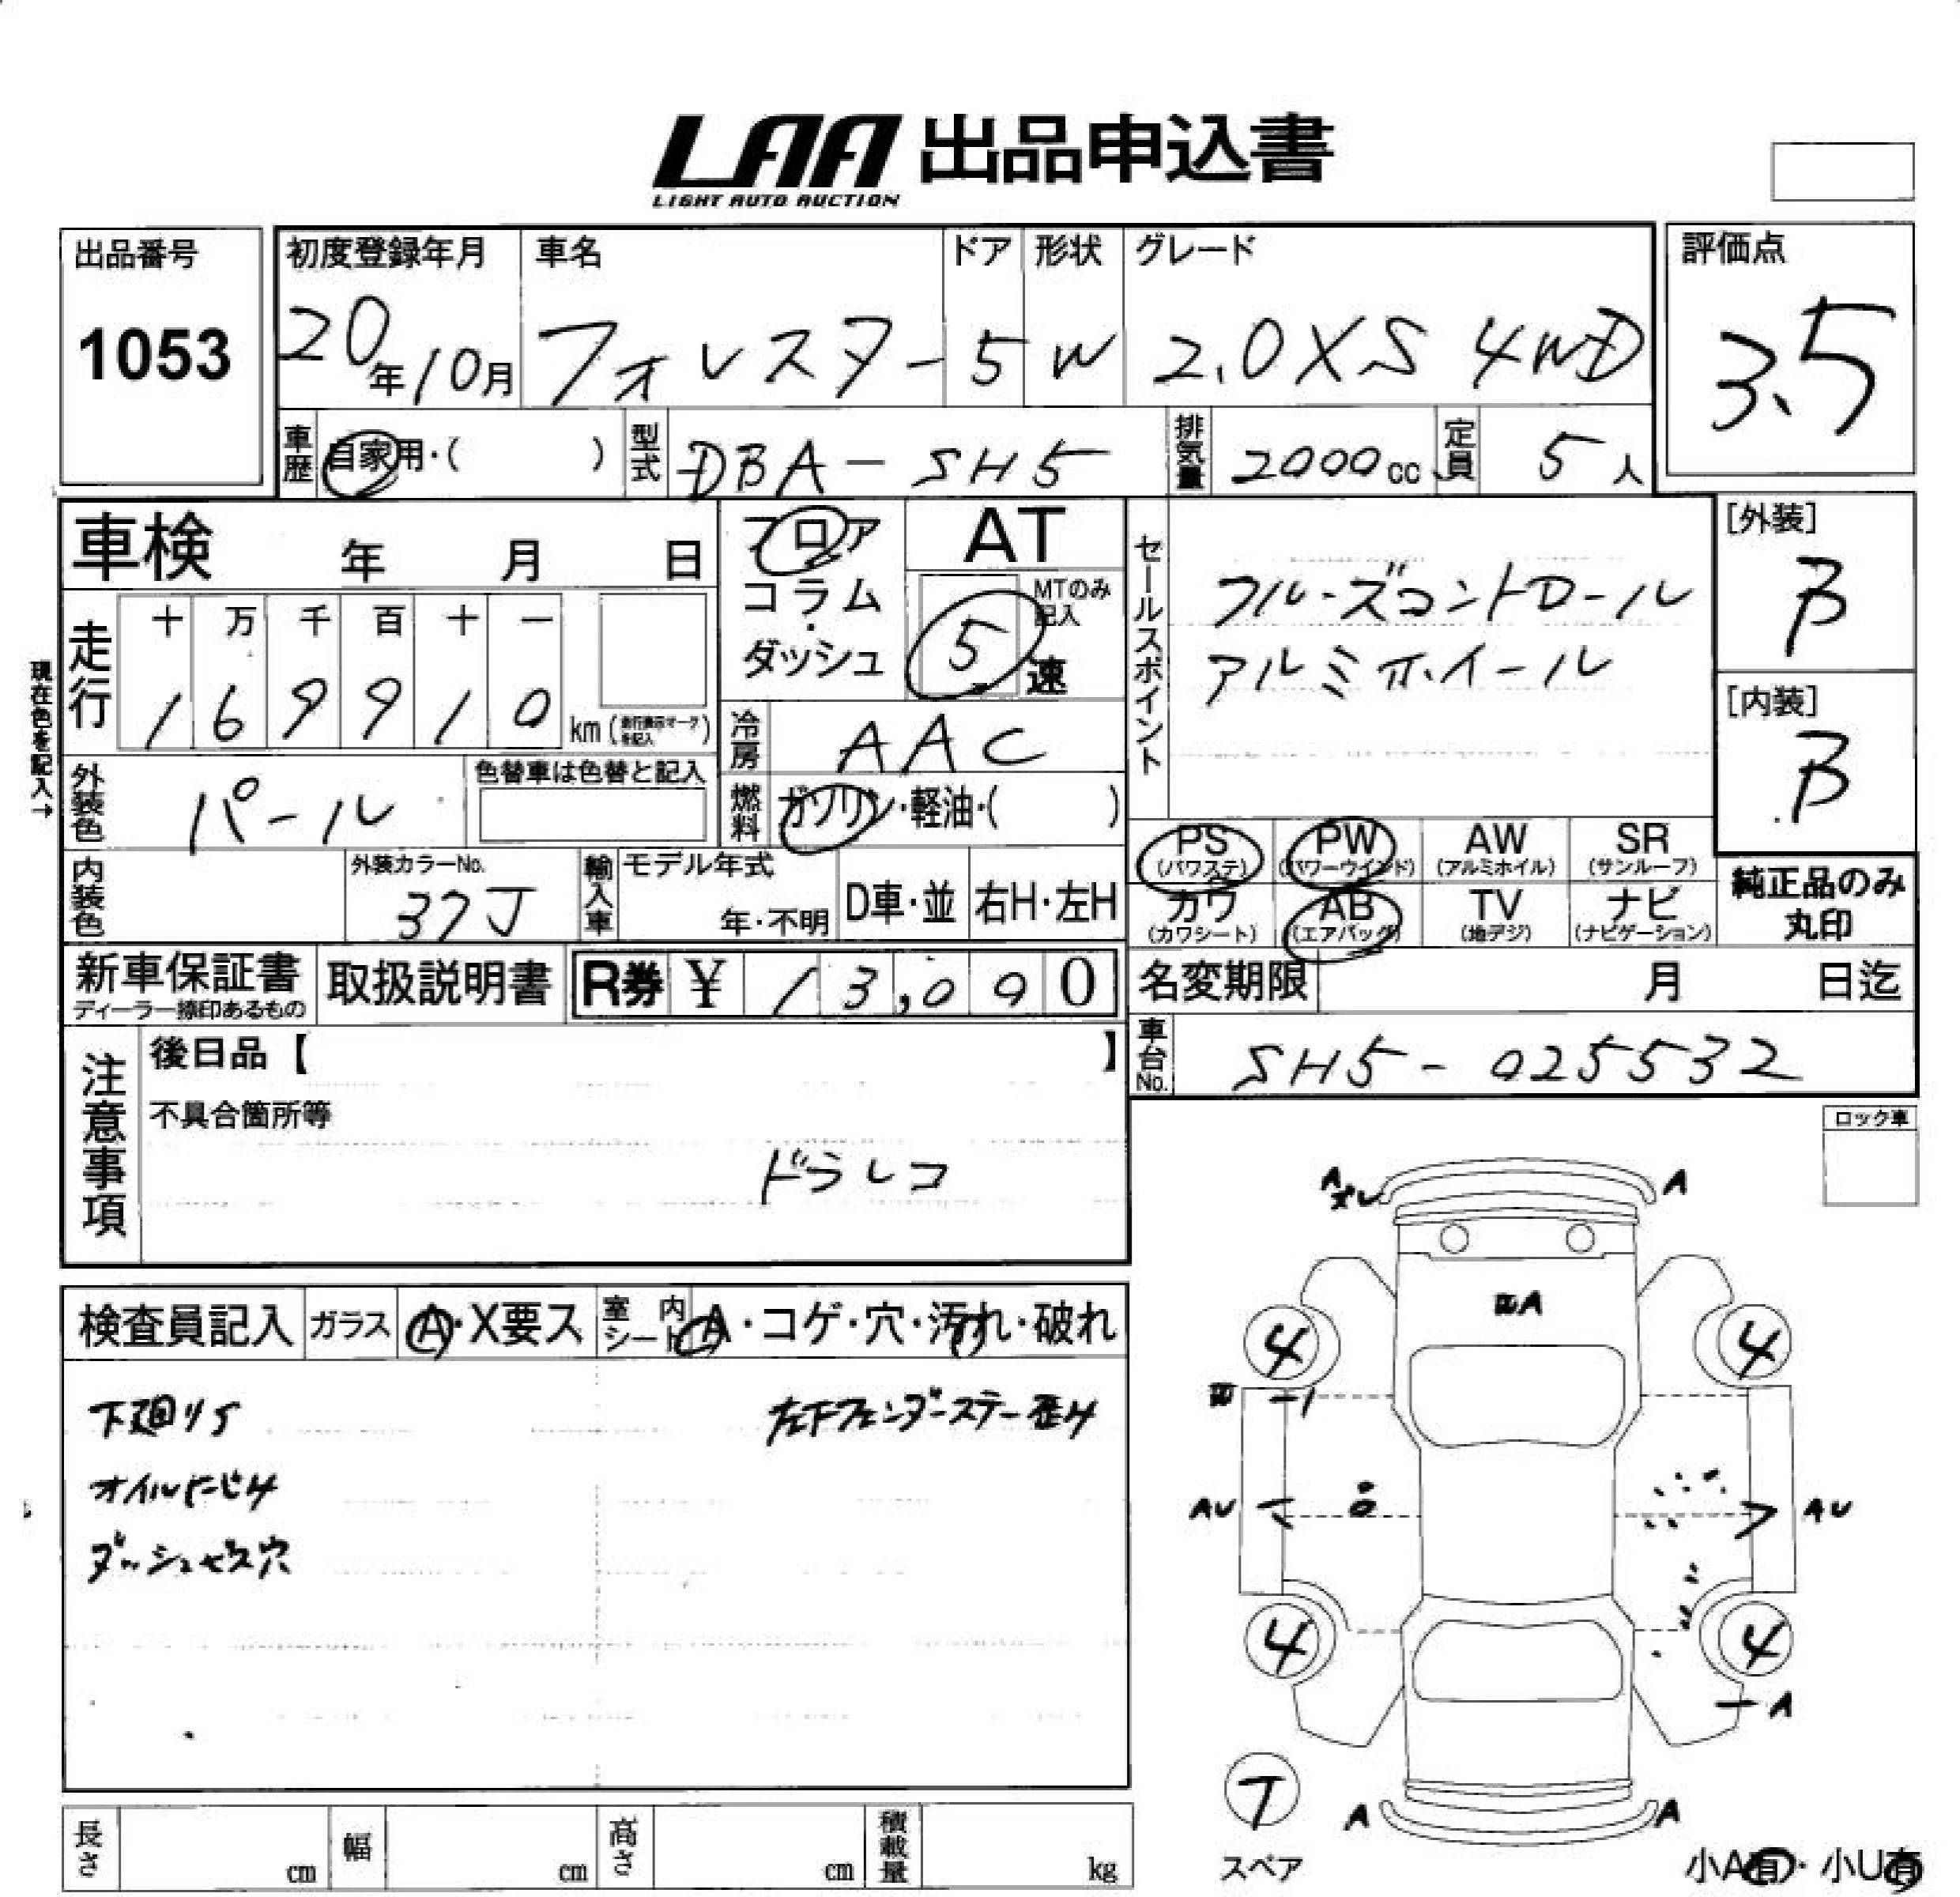 LAA 出品申込書
LIGHT AUTO AUCTION
出品番号
1053
初度登録年月
20年10月
車名
フォレスター
ドア
5
形状
W
グレード
2.0XS 4WD
評価点
3.5
車歴
自家用・( )
型式
DBA-SH5
排気量
2000cc
定員
5人
車検 年 月 日
フロア
コラム
・
ダッシュ
AT
MTのみ
記入
5速
セールスポイント
クルーズコントロール
アルミホイール
[外装]
B
[内装]
B
現在色を記入→
走行
十 万 千 百 十 一
1 6 9 9 1 0
km
冷房
AAC
外装色
パール
色替車は色替と記入
燃料
ガソリン・軽油・( )
PS
(パワステ)
PW
(パワーウインド)
AW
(アルミホイル)
SR
(サンルーフ)
カワ
(カワシート)
AB
(エアバッグ)
TV
(地デジ)
ナビ
(ナビゲーション)
純正品のみ
丸印
内装色
外装カラーNo.
37J
輸入車
モデル年式
年・不明
D車・並
右H・左H
新車保証書
ディーラー捺印あるもの
取扱説明書
R券 ¥ 13,090
名変期限 月 日迄
車台No.
SH5-025532
注意事項
後日品【 】
不具合箇所等
ドラレコ
ロック車
検査員記入
ガラス
A・X要ス
室内
シート
A・コゲ・穴・汚れ・破れ
下廻りS
オイルにじみ
ダッシュビス穴
左下フェンダーステー歪み
A
ズレ
A
A
4
4
AU
AU
4
4
A
T
スペア
A
A
小A有・小U有
長さ cm
幅 cm
高さ cm
積載量 kg